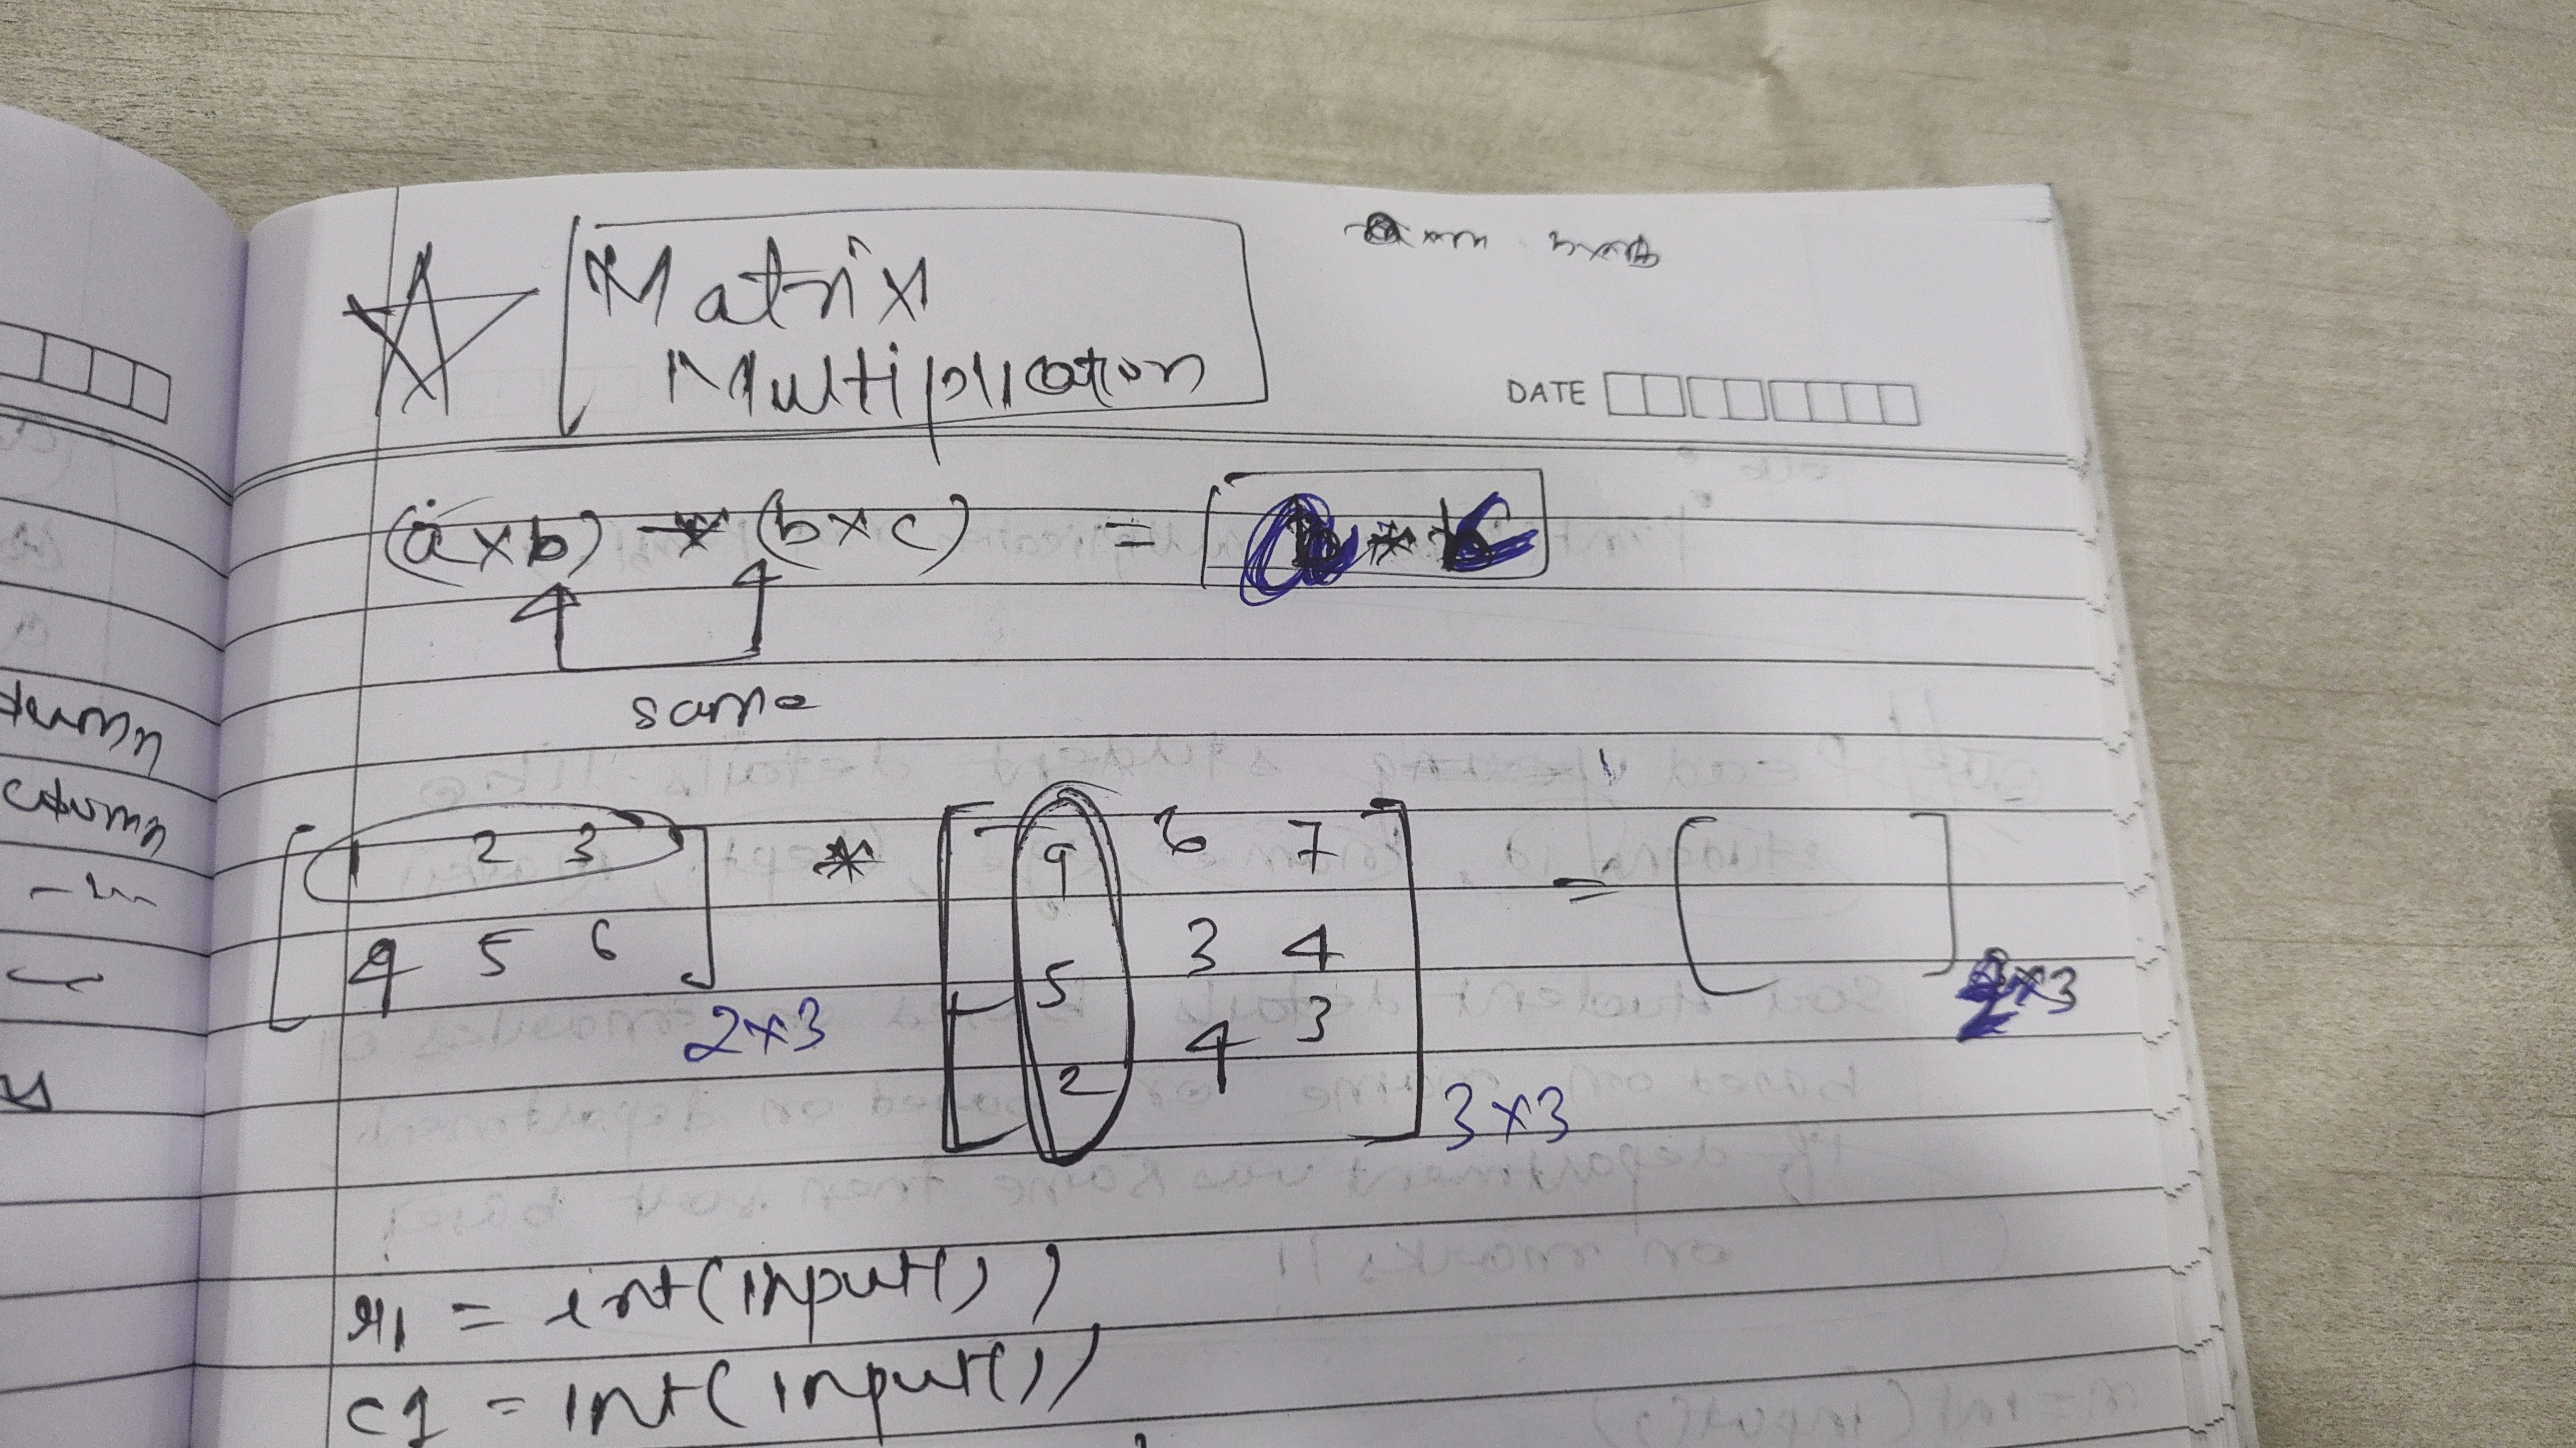 Matrix
Multiplication
DATE
(a×b) * (b×c) = a * c
same
1 2 3 * 9 6 7 =
4 5 6 5 3 4
2 4 3
2×3 3×3 2×3
r1 = int(input())
c1 = int(input())
column